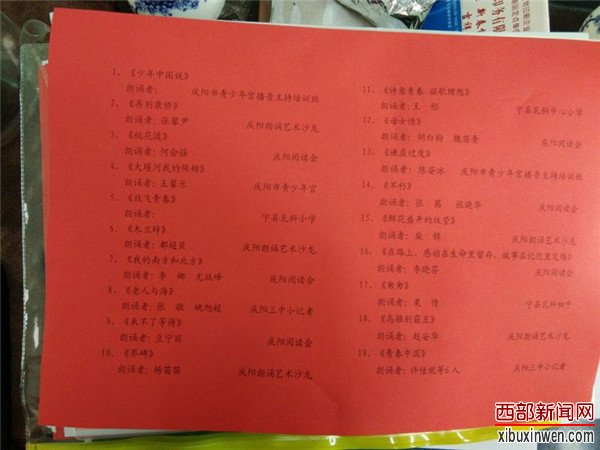 1、《少年中国说》
朗诵者: 庆阳市青少年宫播音主持培训班
2、《再别康桥》
朗诵者：张馨尹 庆阳朗诵艺术沙龙
3、《桃花渡》
朗诵者：何会强 庆阳阅读会
4、《大堰河我的保姆》
朗诵者：王馨乐 庆阳市青少年宫
5、《放飞青春》
朗诵者: 宁县瓦斜小学
6、《木兰辞》
朗诵者：都超贝 庆阳朗诵艺术沙龙
7、《我的南方和北方》
朗诵者：李 娜 尤玖峰 庆阳阅读会
8、《老人与海》
朗诵者：张 敏 姚旭超 庆阳三中小记者
9、《来不了等待》
朗诵者：豆宁国 庆阳阅读会
10、《界碑》
朗诵者：杨苗苗 庆阳朗诵艺术沙龙
11、《诗意青春 讴歌理想》
朗诵者：王 彤 宁县瓦斜中心小学
12、《母女情》
朗诵者：胡白粉 魏苗青 庆阳阅读会
13、《谦虚过度》
朗诵者：陈姿冰 庆阳市青少年宫播音主持培训班
14、《不朽》
朗诵者：张 茜 张晓华 庆阳阅读会
15、《鲜花盛开的故茔》
朗诵者：柴 锦 庆阳朗诵艺术沙龙
16、《在路上，感动在生命里留存，故事在记忆里灵修》
朗诵者：李晓芬 庆阳阅读会
17、《匆匆》
朗诵者：袁 倩 宁县瓦斜初中
18、《乌雅别霸王》
朗诵者：赵安华 庆阳朗诵艺术沙龙
19、《青春中国》
朗诵者：许佳妮等6人 庆阳三中小记者
西部新闻网
xibuxinwen.com